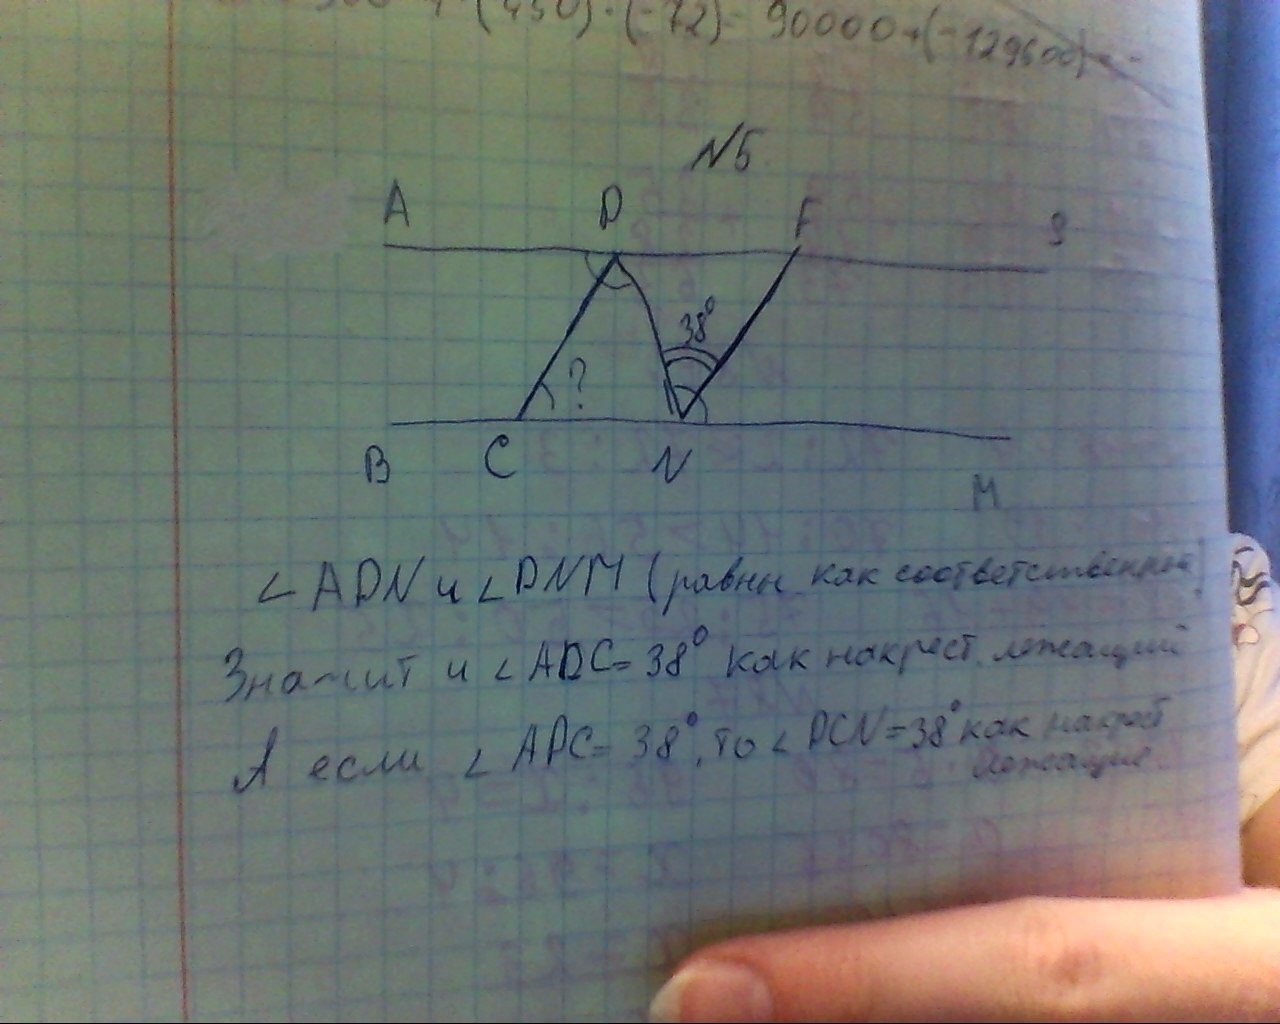 (450) · (-72) = 90000 + (-129600) =
N5
A D F
38°
?
B C N M
∠ADN и ∠DNM (равны как соответственные)
Значит и ∠ADC = 38° как накрест лежащий
А если ∠ADC = 38°, то ∠DCN = 38° как накрест
лежащие.